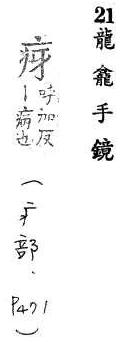 21龍龕手鏡
疨呼加反
丨病也
(疒部.
P471)